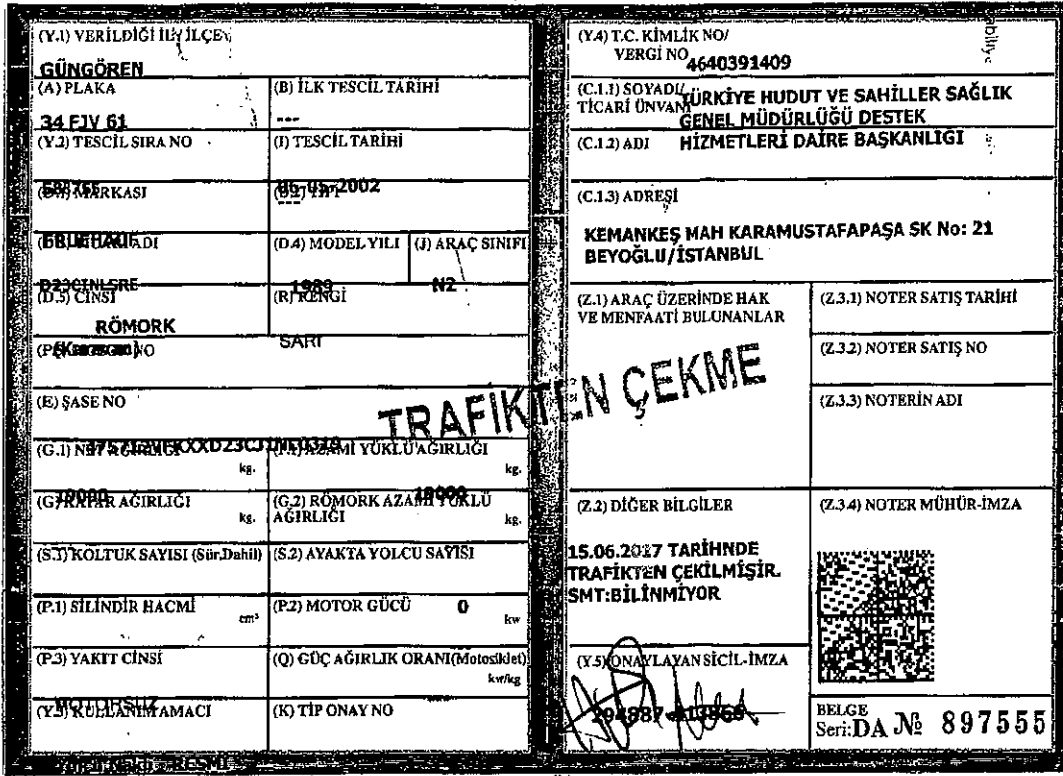 (Y.1) VERİLDİĞİ İL/İLÇE
GÜNGÖREN
(A) PLAKA
(B) İLK TESCİL TARİHİ
34 FJV 61
---
(Y.2) TESCİL SIRA NO
(I) TESCİL TARİHİ
06-05-2002
MARKASI
---
(D.4) MODEL YILI
(J) ARAÇ SINIFI
1989
N2
(D.5) CİNSİ
(R) RENGİ
RÖMORK
SARI
NO
(E) ŞASE NO
TRAFİKTEN ÇEKME
(G.1) NET AĞIRLIĞI
kg.
(F.1) AZAMİ YÜKLÜ AĞIRLIĞI
kg.
(G) KATAR AĞIRLIĞI
kg.
(G.2) RÖMORK AZAMİ YÜKLÜ
AĞIRLIĞI
kg.
(S.1) KOLTUK SAYISI (Sür.Dahil)
(S.2) AYAKTA YOLCU SAYISI
(P.1) SİLİNDİR HACMİ
cm³
(P.2) MOTOR GÜCÜ
0
kw
(P.3) YAKIT CİNSİ
(Q) GÜÇ AĞIRLIK ORANI(Motosiklet)
kw/kg
MOTORSUZ
(Y.3) KULLANIM AMACI
(K) TİP ONAY NO
(Y.4) T.C. KİMLİK NO/
VERGİ NO
4640391409
(C.1.1) SOYADI/
TİCARİ ÜNVANI
TÜRKİYE HUDUT VE SAHİLLER SAĞLIK
GENEL MÜDÜRLÜĞÜ DESTEK
(C.1.2) ADI
HİZMETLERİ DAİRE BAŞKANLIĞI
(C.1.3) ADRESİ
KEMANKEŞ MAH KARAMUSTAFAPAŞA SK No: 21
BEYOĞLU/İSTANBUL
(Z.1) ARAÇ ÜZERİNDE HAK
VE MENFAATİ BULUNANLAR
(Z.3.1) NOTER SATIŞ TARİHİ
(Z.3.2) NOTER SATIŞ NO
(Z.3.3) NOTERİN ADI
(Z.2) DİĞER BİLGİLER
(Z.3.4) NOTER MÜHÜR-İMZA
15.06.2017 TARİHNDE
TRAFİKTEN ÇEKİLMİŞİR.
SMT:BİLİNMİYOR
(Y.5) ONAYLAYAN SİCİL-İMZA
BELGE
Seri:DA № 897555